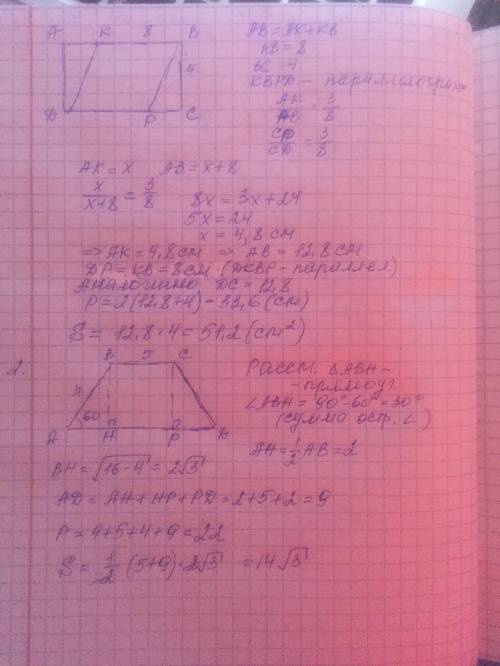 A K 8 B
4
D P C
AB = AK+KB
KB = 8
BC = 4
KBPD - параллелограм
AK/AB = 3/8
CP/CD = 3/8
AK = x AB = x+8
x/(x+8) = 3/8 8x = 3x+24
5x = 24
x = 4,8 см
=> AK = 4,8 см => AB = 12,8 см
DP = KB = 8 см (DKBP - параллел)
Аналогично DC = 12,8
P = 2(12,8+4) = 33,6 (см)
S = 12,8·4 = 51,2 (см²)
2.
B 5 C
4
60°
A H P D
Рассм. ΔABH -
- прямоуг.
∠ABH = 90°-60° = 30°
(сумма остр. ∠)
AH = 1/2 AB = 2
BH = √(16-4) = 2√3
AD = AH+HP+PD = 2+5+2 = 9
P = 4+5+4+9 = 22
S = 1/2 (5+9)·2√3 = 14√3